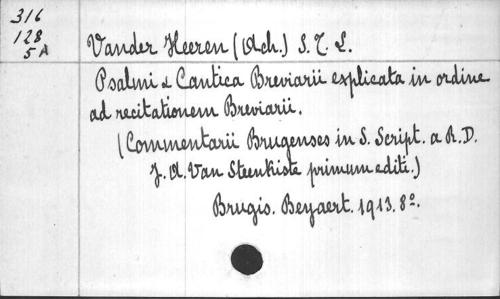 316
128
5A
Vander Heeren (Ach.) S. T. L.
Psalmi & Cantica Breviarii explicata in ordine
ad recitationem Breviarii.
(Commentarii Brugenses in S. Script. a R. D.
J. A. Van Steenkiste primum editi.)
Brugis. Beyaert. 1913. 8º.